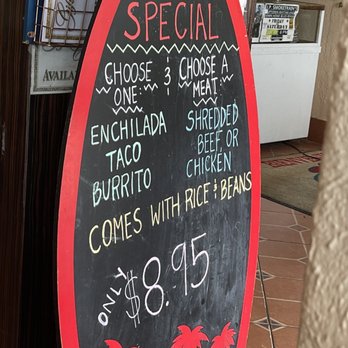 SPECIAL
CHOOSE ONE: & CHOOSE A MEAT:
ENCHILADA
TACO
BURRITO
SHREDDED
BEEF, OR
CHICKEN
COMES WITH RICE & BEANS
ONLY $8.95
AVAILA